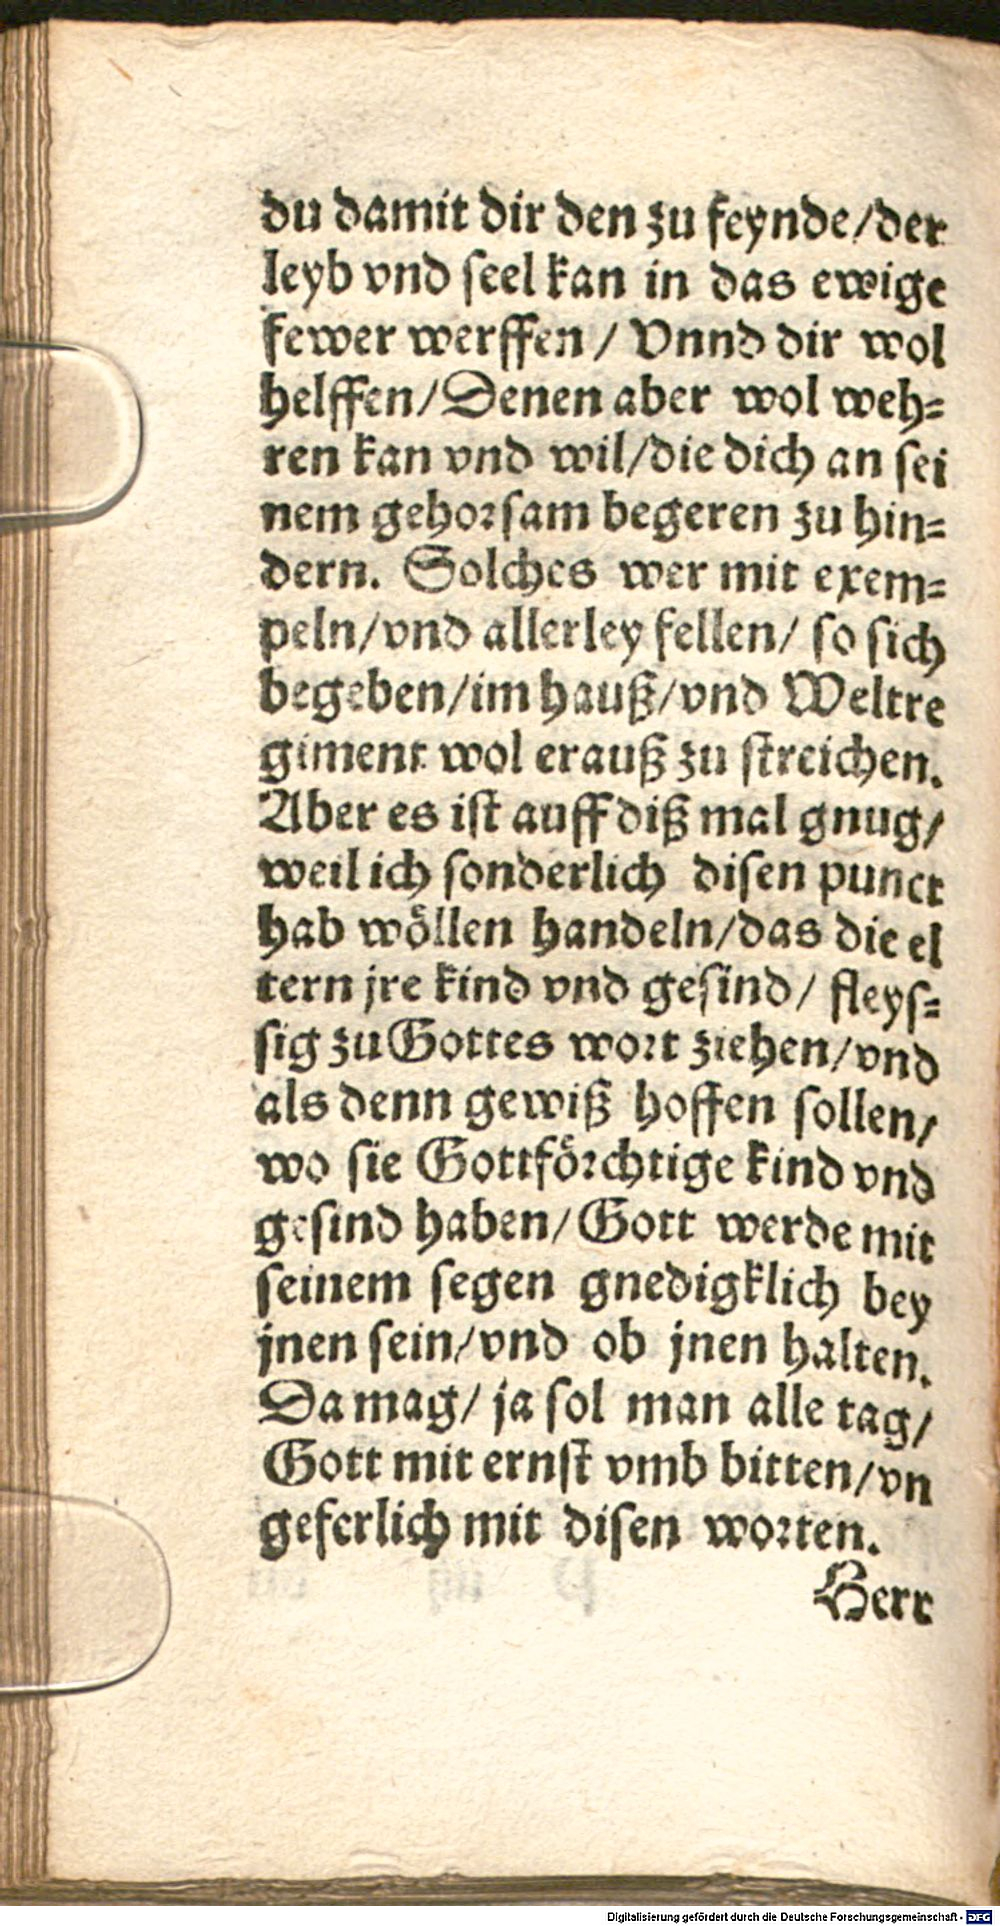 du damit dir den zu feynde/der
leyb vnd seel kan in das ewige
fewer werffen / Vnnd dir wol
helffen/Denen aber wol weh=
ren kan vnd wil/die dich an sei
nem gehorsam begeren zu hin=
dern. Solches wer mit exem=
peln/vnd allerley fellen/ so sich
begeben/im hauß/vnd Weltre
giment wol erauß zu streichen.
Aber es ist auff diß mal gnug/
weil ich sonderlich disen punct
hab wöllen handeln/das die el
tern jre kind vnd gesind/ fleys=
sig zu Gottes wort ziehen/vnd
als denn gewiß hoffen sollen/
wo sie Gottförchtige kind vnd
gesind haben/Gott werde mit
seinem segen gnedigklich bey
jnen sein/vnd ob jnen halten.
Da mag/ ja sol man alle tag/
Gott mit ernst vmb bitten/vn
geferlich mit disen worten.
Herr
Digitalisierung gefördert durch die Deutsche Forschungsgemeinschaft - DFG